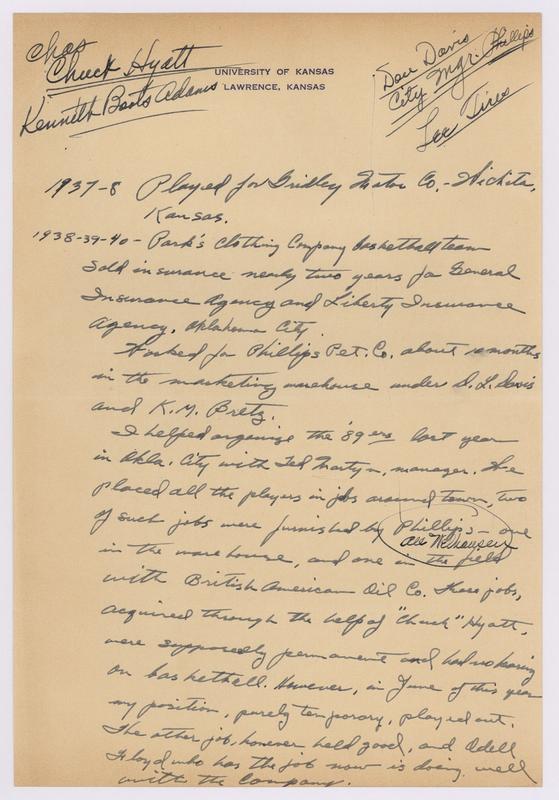 Chas
Chuck Hyatt
Kenneth Boots Adams
UNIVERSITY OF KANSAS
LAWRENCE, KANSAS
Dave Davis
City Mgr. Phillips
Lee Tires
1937-8 Played for Gridley Motor Co. - Wichita,
Kansas.
1938-39-40 - Park's Clothing Company basketball team
Sold insurance nearly two years for General
Insurance Agency and Liberty Insurance
Agency, Oklahoma City.
Worked for Phillips Pet. Co. about 10 months
in the marketing warehouse under D. L. Davis
and K. M. Bretz.
I helped organize the '89ers last year
in Okla. City with Ted Martyn, manager. We
placed all the players in jobs around town, two
of such jobs were furnished by Phillips - one
in the warehouse, and one in the field
with British American Oil Co. These jobs,
acquired through the help of "Chuck" Hyatt,
were supposedly permanent and had no bearing
on basketball. However, in June of this year
my position, purely temporary, played out.
The other job, however held good, and Odell
Floyd, who has the job now is doing well
with the Company.